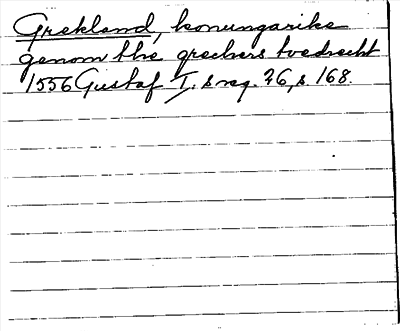 Grekland, konungarike
genom the grekers tvedrecht
1556 Gustaf I. s reg. 26, s 168.